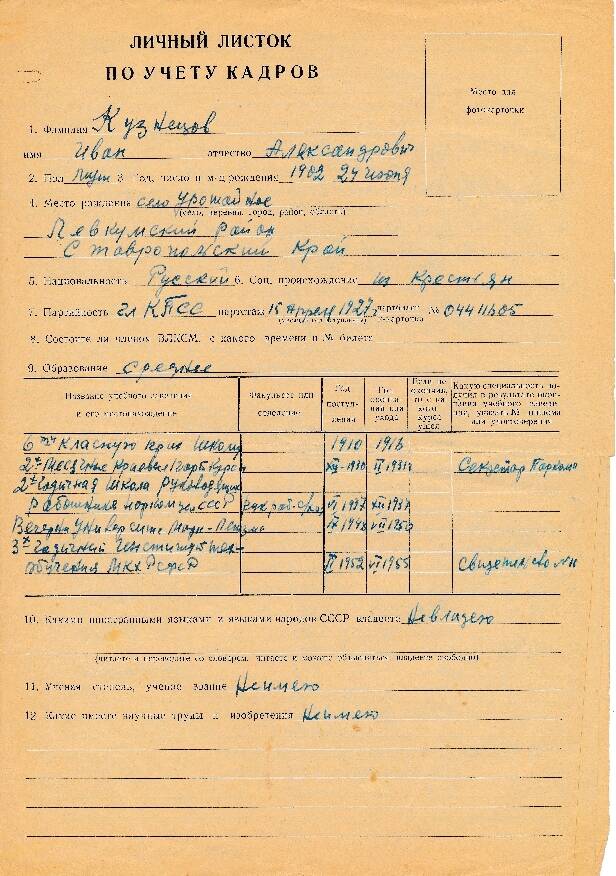 ЛИЧНЫЙ ЛИСТОК
ПО УЧЕТУ КАДРОВ
Место для
фотокарточки
1. Фамилия Кузнецов
имя Иван отчество Александрович
2. Пол Муж 3. Год, число и м-ц рождения 1902 24 июня
4. Место рождения село Урожайное
(село, деревня, город, район, область)
Левкумский район
Ставропольский Край
5. Национальность Русский 6. Соц. происхождение из Крестьян
7. Партийность чл КПСС партстаж 15 Апреля 1927 № 04411605
8. Состоите ли членом ВЛКСМ, с какого времени и № билета
9. Образование среднее
Название учебного заведения
и его местонахождение
Факультет или
отделение
Год
поступ-
ления
Год
окончания
или
ухода
Если не
окончил,
то с
какого
курса
ушел
Какую специальность по-
лучил в результате окон-
чания учебного заведе-
ния, указать № диплома
или удостоверения
6ти Класную Школу 1910 1916
2х Месячные Краевые Парткурсы 1930 1931 Секретар Парткома
2х годичная Школа Руководящих
работников СССР VI 1937 XII 1937
Вечерни Университе Маркс-Ленизма IX 1948 VII 1950
3х годичный Институт тех-
обучения МКХ РСФСР 1952 VI 1955 Свидетелство
10. Какими иностранными языками и языками народов СССР владеете Невладею
(читаете и переводите со словарем, читаете и можете объясняться, владеете свободно)
11. Ученая степень, ученое звание Неимею
12. Какие имеете научные труды и изобретения Неимею